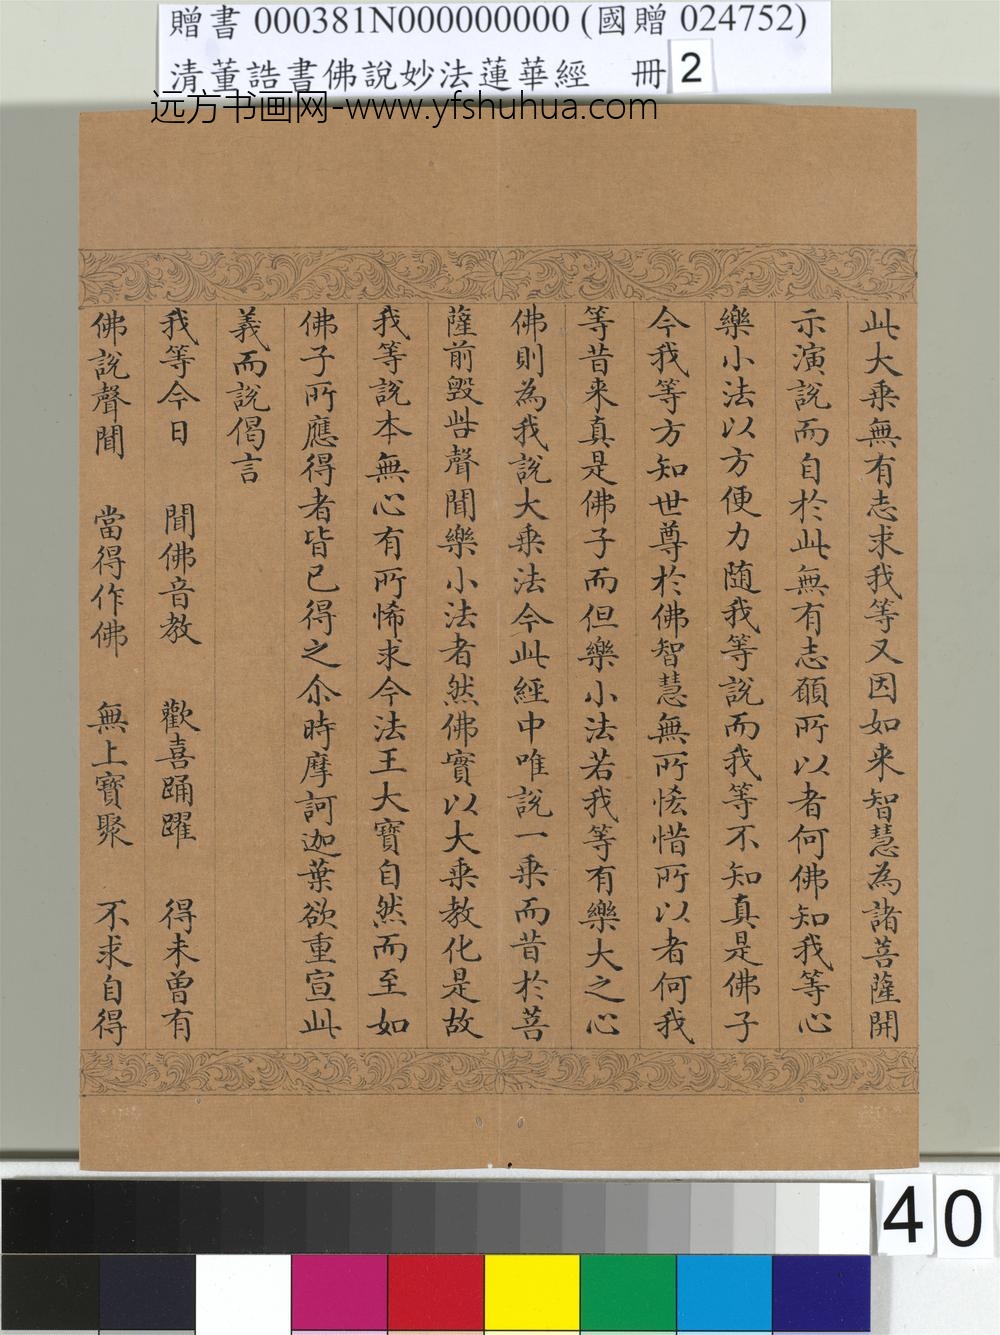 贈書 000381N000000000 (國贈 024752)
清董誥書佛說妙法蓮華經 冊 2
远方书画网-www.yfshuhua.com
此大乘無有志求我等又因如来智慧為諸菩薩開
示演說而自於此無有志願所以者何佛知我等心
樂小法以方便力随我等說而我等不知真是佛子
今我等方知世尊於佛智慧無所恡惜所以者何我
等昔来真是佛子而但樂小法若我等有樂大之心
佛則為我說大乘法今此經中唯說一乘而昔於菩
薩前毀呰聲聞樂小法者然佛實以大乘教化是故
我等說本無心有所悕求今法王大寶自然而至如
佛子所應得者皆已得之尒時摩訶迦葉欲重宣此
義而說偈言
我等今日 聞佛音教 歡喜踊躍 得未曾有
佛說聲聞 當得作佛 無上寶聚 不求自得
40